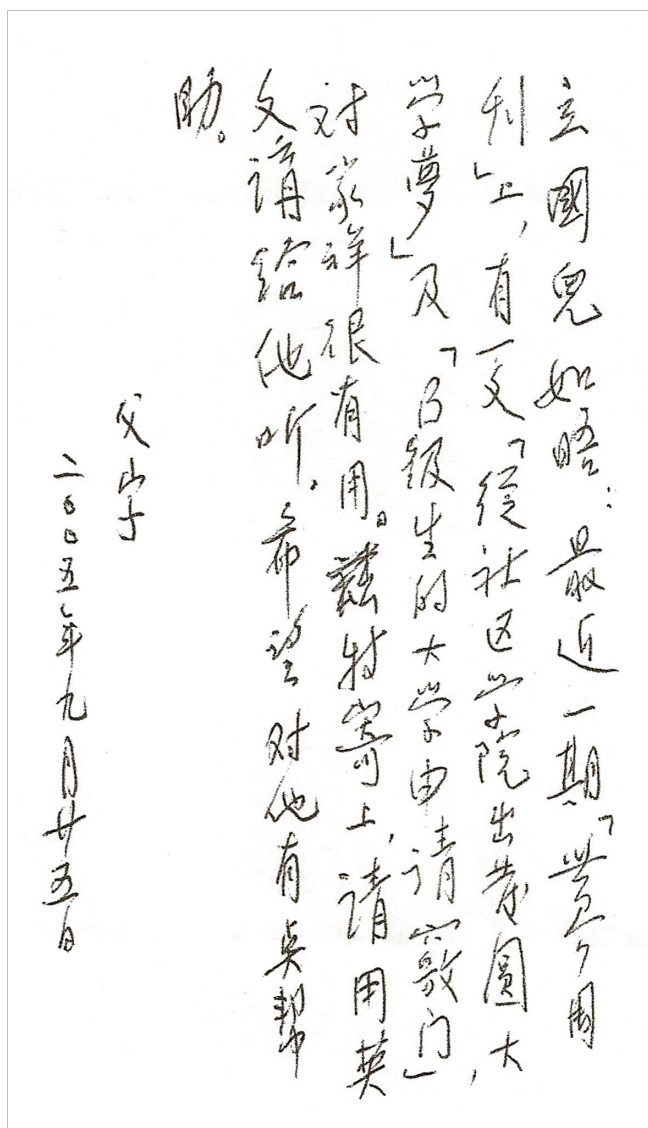 立國兒如晤：最近一期「世界周
刊」上，有一文「從社区学院出发圆大
学夢」及「B级生的大学申请窍门」，
对家祥很有用。兹特寄上，请用英
文講给他听，希望对他有点帮
助。
父字
二〇〇五年九月廿五日